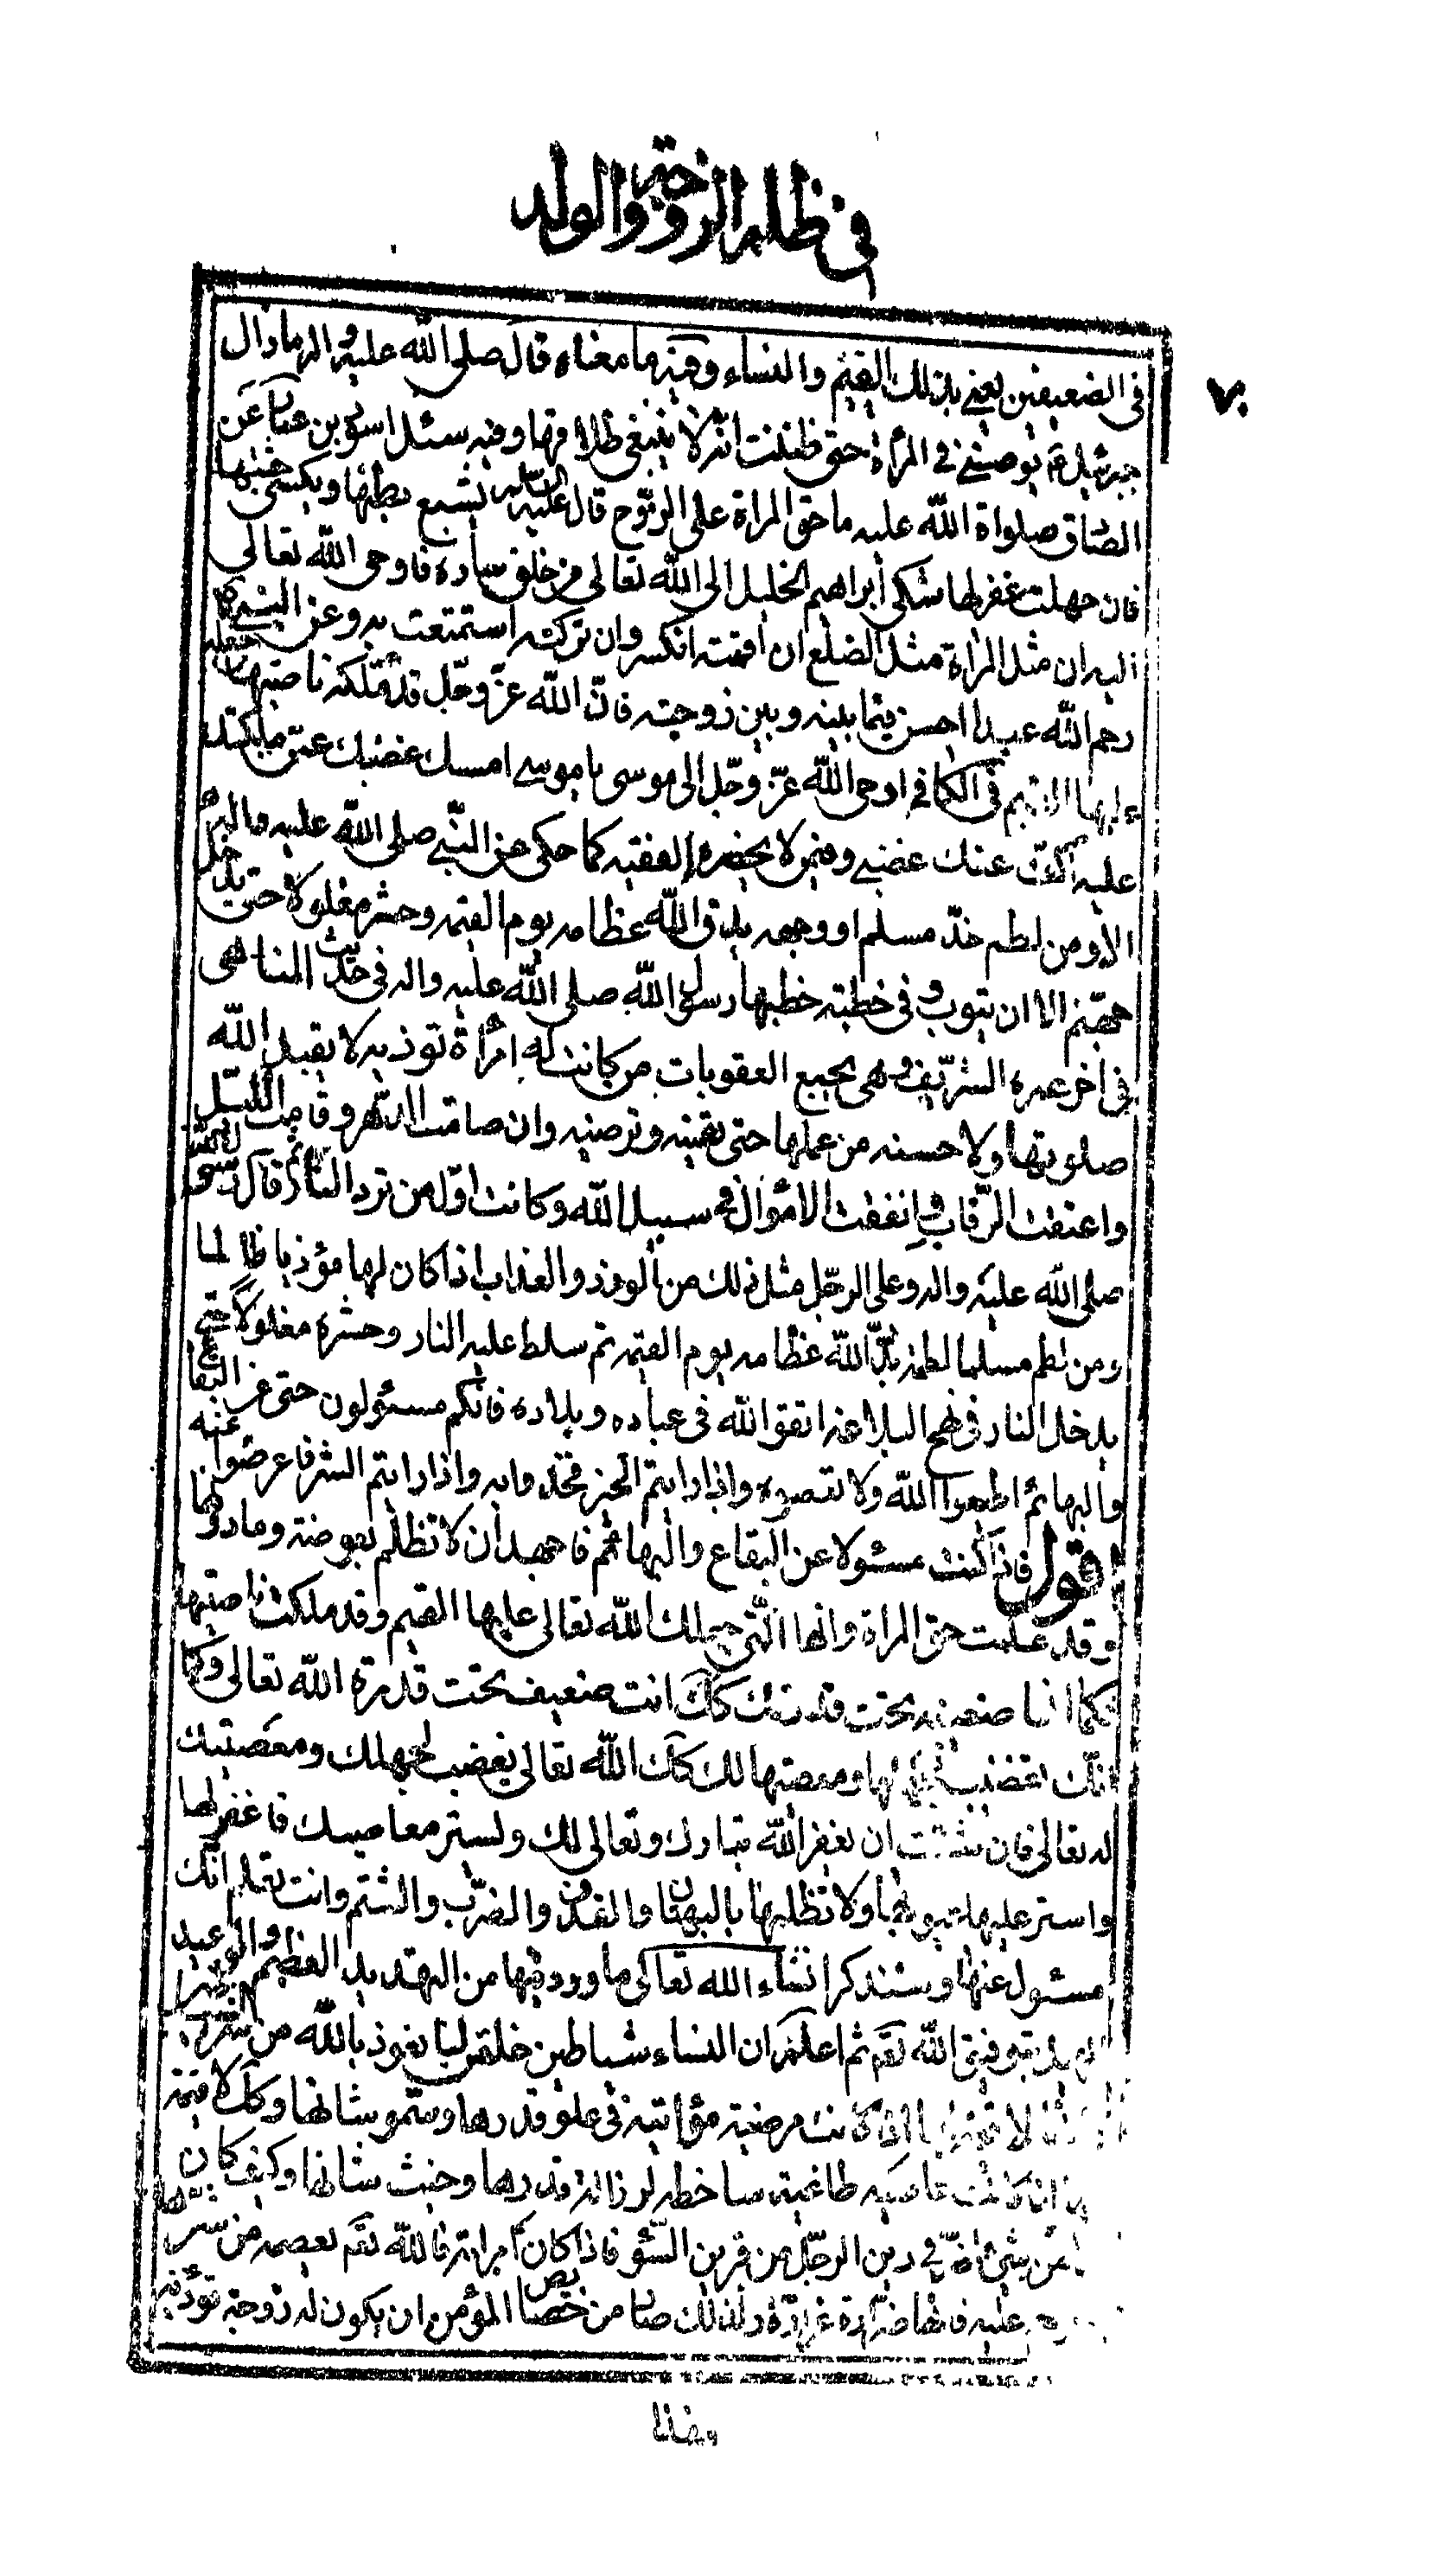 فى ظلم الزوجة والولد
٧٠
فى الضعيفين يعنى بذلك اليتيم والنساء وفيه ما معناه قال صلى الله عليه واله ما زال
جبرئيل ع توصينى فى المرأة حتى ظننت انه لا ينبغى طلاقها وفيه سئل اسحق بن عمار عن
الصادق صلواة الله عليه ما حق المراة على الزوج قال عليه السلام يشبع بطنها ويكسى جثتها
فان جهلت غفر لها شكى ابراهيم الخليل الى الله تعالى من خلق سارة فاوحى الله تعالى
اليه ان مثل المراة مثل الضلع ان اقمته انكسر وان تركته استمتعت به وعن النبى
رحم الله عبدا احسن فيما بينه وبين زوجته فان الله عز وجل قد ملكه ناصيتها وجعله
عليها القيم فى الكافى اوحى الله عز وجل الى موسى يا موسى امسك غضبك عمن ملكتك
عليه اكف عنك غضبى وفيمن لا يحضره الفقيه كما حكى عن النبى صلى الله عليه واله
الا ومن لطم خد مسلم او وجهه بدد الله عظامه يوم القيمة وحشر مغلولا حتى يدخل
جهنم الا ان يتوب وفى خطبته خطبها رسول الله صلى الله عليه واله فى حديث المناهى
فى اخر عمره الشريف وهى بجميع العقوبات من كانت له امرأة تؤذيه لا يقبل الله
صلوتها ولا حسنه من عملها حتى تعينه وترضيه وان صامت الدهر وقامت الليل
واعتقت الرقاب وانفقت الاموال فى سبيل الله وكانت اول من ترد النار ثم قال رسول الله
صلى الله عليه واله وعلى الرجل مثل ذلك من الوزر والعذاب اذا كان لها مؤذيا ظالما
ومن لطم مسلما لطمة بدد الله عظامه يوم القيمة ثم سلط عليه النار وحشره مغلولا حتى
يدخل النار فى نهج البلاغه اتقوا الله فى عباده وبلاده فانكم مسئولون حتى عن البقاع
والبهائم اطيعوا الله ولا تعصوه واذا رايتم الخير فخذوا به واذا رايتم الشر فاعرضوا عنه
اقول فاذا كنت مسئولا عن البقاع والبهائم فاجهد ان لا تظلم بعوضة وما دونها
وقد علمت حق المراة وانها التى جعلك الله تعالى عليها القيم وقد ملكت ناصيتها
فكما انها ضعيفة تحت قدرتك كك انت ضعيف تحت قدرة الله تعالى وكما
انك تغضب لجهلها ومعصيتها لك كك الله تعالى يغضب لجهلك ومعصيتك
له تعالى فان شئت ان يغفر الله تبارك وتعالى لك ويستر معاصيك فاغفر لها
واستر عليها عيوبها ولا تظلمها بالبهتان والقذف والضرب والشتم وانت تعلم انك
مسئول عنها وسنذكر انشاء الله تعالى ما ورد فيها من التهديد العظيم والوعيد
بتوفيق الله تعم ثم اعلم ان النساء شياطين خلقن لنا نعوذ بالله من
لا قيمة لها اذا كانت مرضية مؤاتية فى علو قدرها وسمو شانها وكك لا قيمة
لها اذا كانت عاصيه طاغية ساخطه لرذالة قدرها وخبث شانها وكيف كان
من شئ اضر فى دين الرجل من قرين السوء فاذا كان امراته فالله تعم يعصمه من شرها
عليه فانها ضرارة غرارة ولذلك صار من خصايص المؤمن ان يكون له زوجة تؤذيه